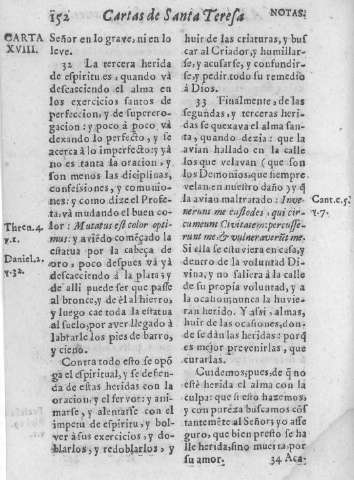 152 Cartas de Santa Teresa NOTAS.
CARTA
XVIII.
Señor en lo grave, ni en lo
leve.
32 La tercera herida
de espiritu es, quando vá
descaeciendo el alma en
los exercicios santos de
perfeccion, y de superero-
gacion: y poco á poco vá
dexando lo perfecto, y se
acerca á lo imperfecto: y yá
no es tanta la oracion, y
son menos las diciplinas,
confessiones, y comunio-
nes: y como dize el Profe-
ta, vá mudando el buen co-
lor: Mutatus est color opti-
mus: y aviédo comẽçado la
estatua por la cabeça de
oro, poco despues vá yá
descaeciendo á la plata; y
de alli puede ser que passe
al bronce, y de él al hierro,
y luego cae toda la estatua
al suelo, por aver llegado á
labrarle los pies de barro,
y cieno.
Contra todo esto se opõ
ga el espiritual, y se defien-
da de estas heridas con la
oracion, y el fervor: y ani-
marse, y alentarse con el
impetu de espiritu, y bol-
ver á sus exercicios, y do-
blarlos, y redoblarlos, y
Thren. 4.
v. 1.
Daniel. 2.
v. 32.
huir de las criaturas, y bus
car al Criador, y humillar-
se, y acusarse, y confundir-
se, y pedir todo su remedio
á Dios.
33 Finalmente, de las
segundas, y terceras heri-
das se quexava el alma san-
ta, quando dezia: que la
avian hallado en la calle
los que velavan (que son
los Demonios, que siempre
velan en nuestro daño) y q̃
la avian maltratado: Inve-
nerunt me custodes, qui cir-
cumeunt Civitatem: percusse-
runt me, & vulneraverũt me.
Si ella se estuviera en casa, y
dentro de la voluntad Di-
vina, y no saliera á la calle
de su propia voluntad, y a
la ocasion, nunca la huvie-
ran herido. Y assi, almas,
huir de las ocasiones, don-
de se dán las heridas: porq̃
es mejor prevenirlas, que
curarlas.
Cuidemos, pues, de q̃ no
esté herida el alma con la
culpa: que si esto hazemos,
y con pureza buscamos cõs
tantemẽte al Señor, yo asse
guro, que bien presto se ha
lle herida, sino muerta, por
su amor. 34 Aca-
Cant. c. 5.
v. 7.